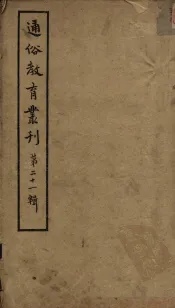 通俗教育叢刊 第二十一輯